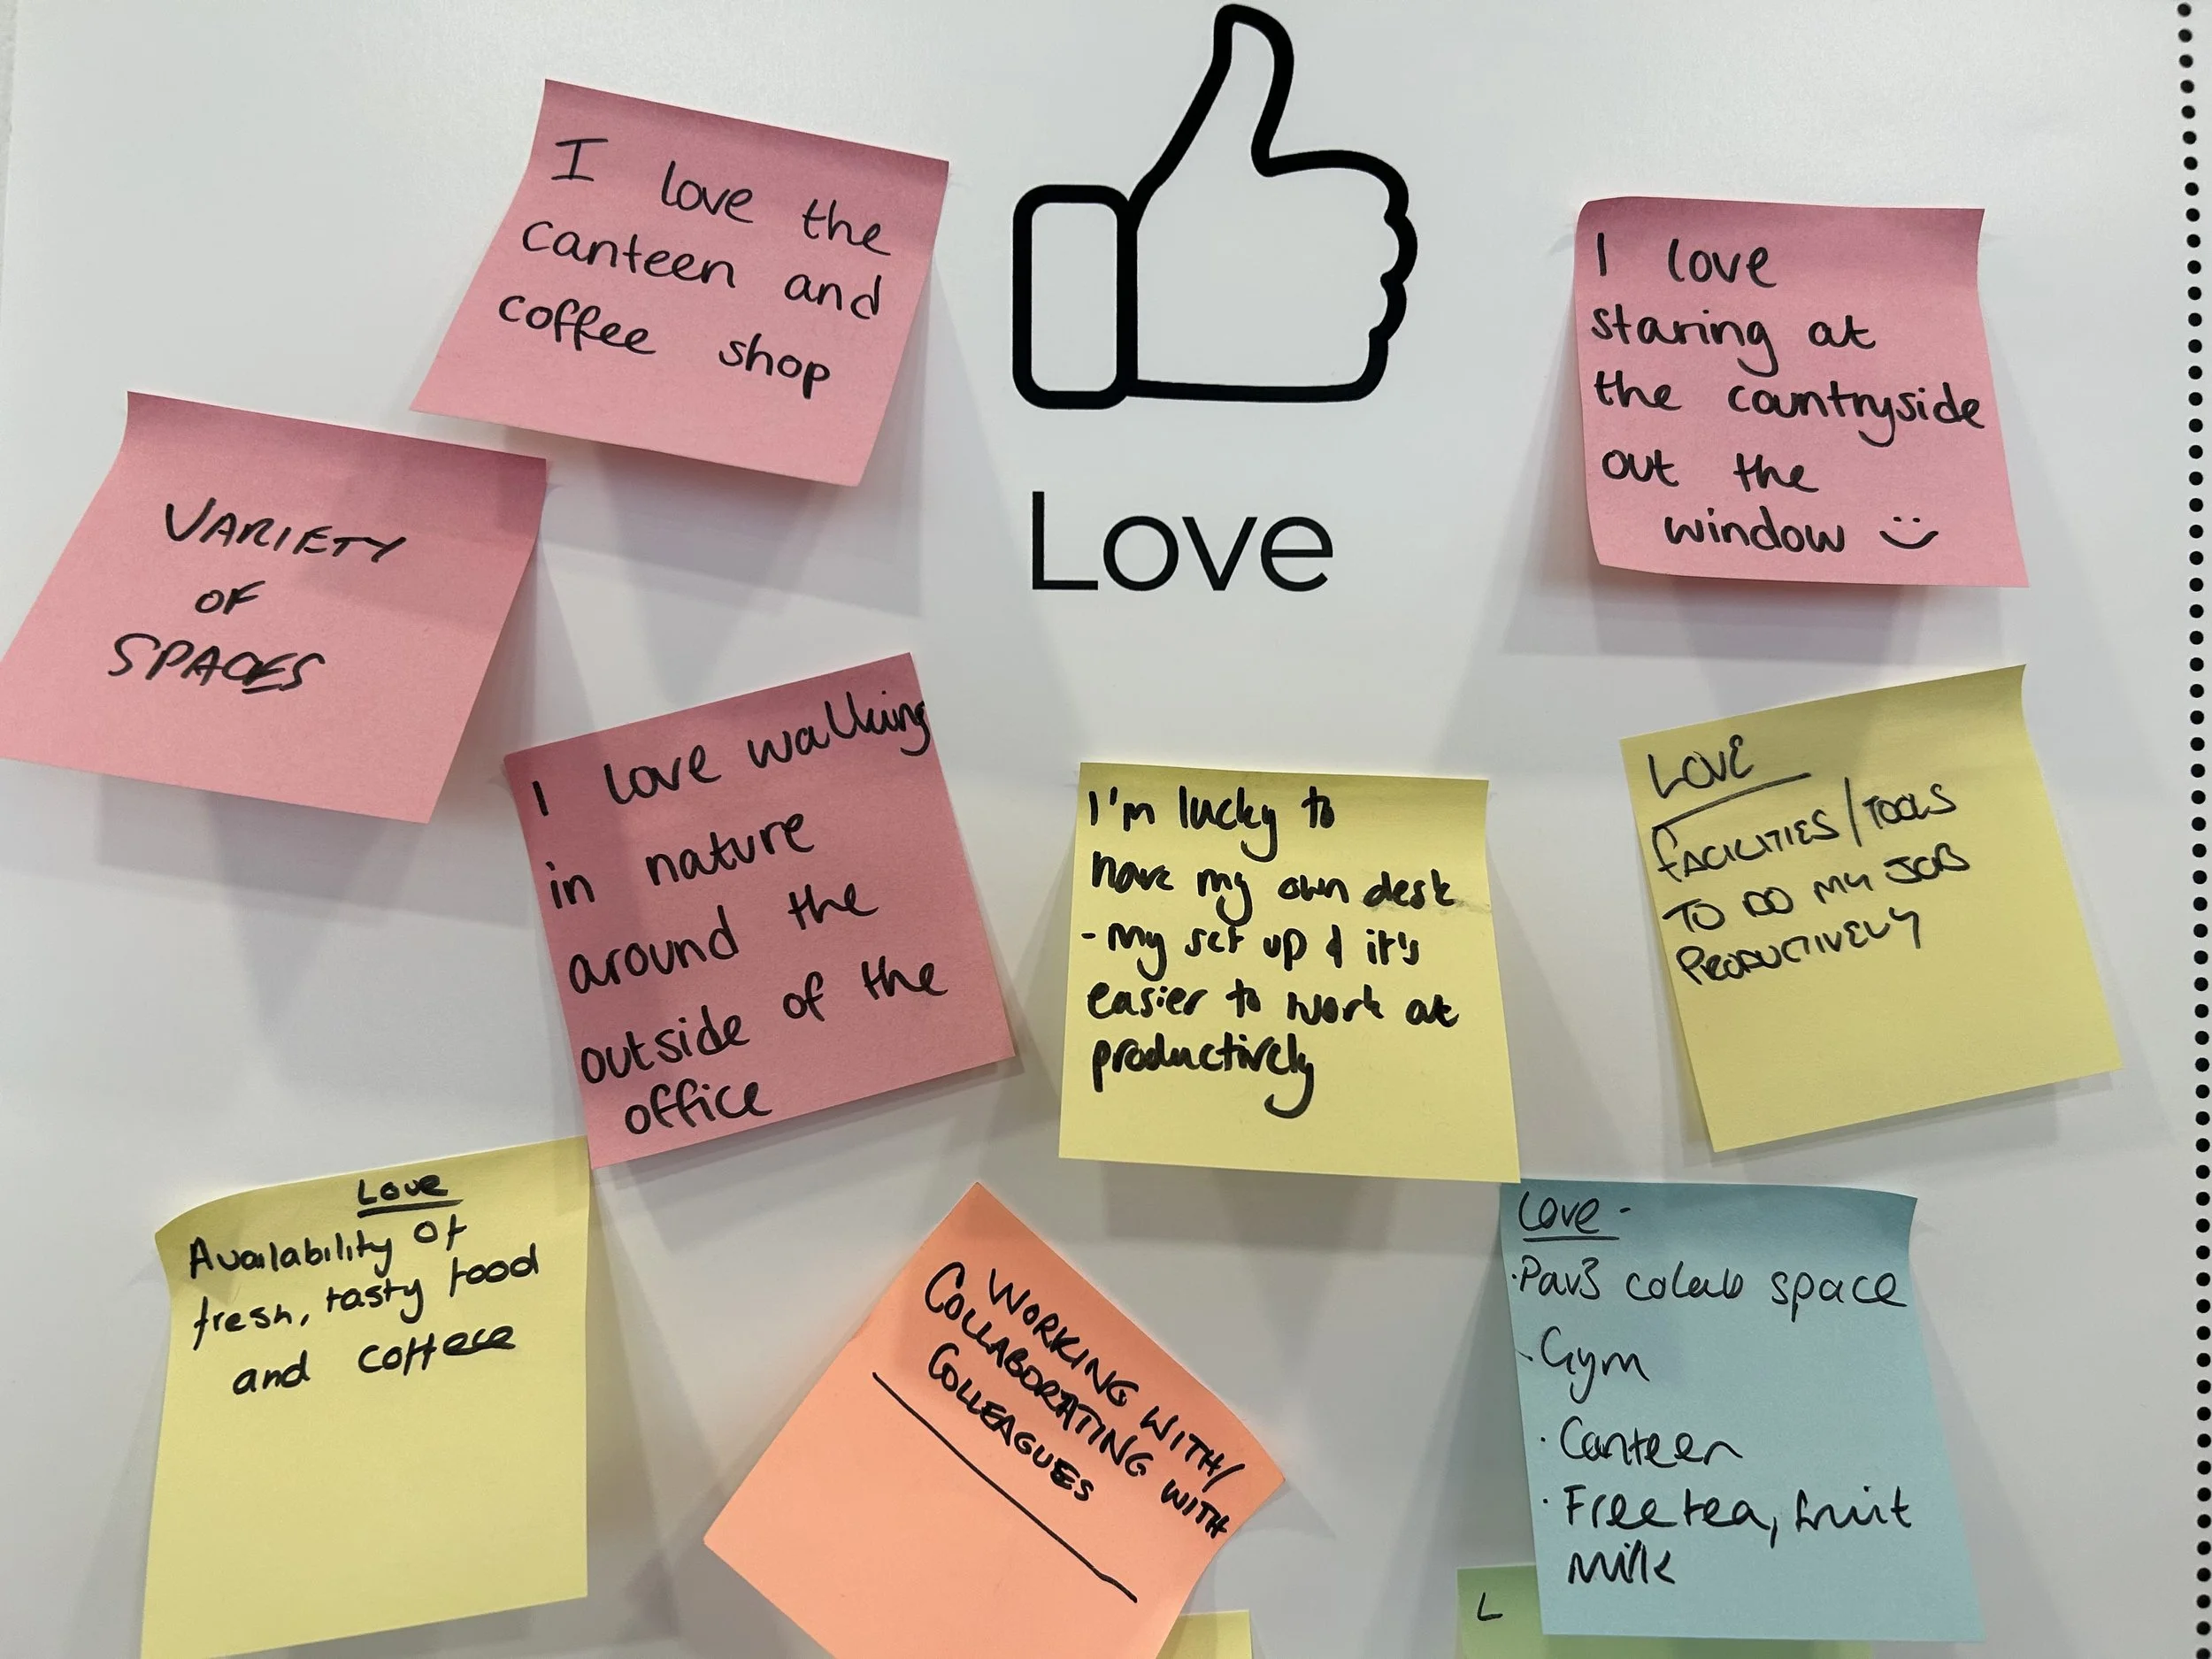 I love the
canteen and
coffee shop
Love
I love
staring at
the countryside
out the
window
VARIETY
OF
SPACES
I love walking
in nature
around the
outside of the
office
I'm lucky to
have my own desk
- my set up & it's
easier to work at
productively
LOVE
FACILITIES/TOOLS
TO DO MY JOB
PRODUCTIVELY
Love
Availability of
fresh, tasty food
and coffeee
WORKING WITH/
COLLABORATING WITH
COLLEAGUES
Love -
· Pav3 colab space
· Gym
· Canteen
· Free tea, fruit
milk
L